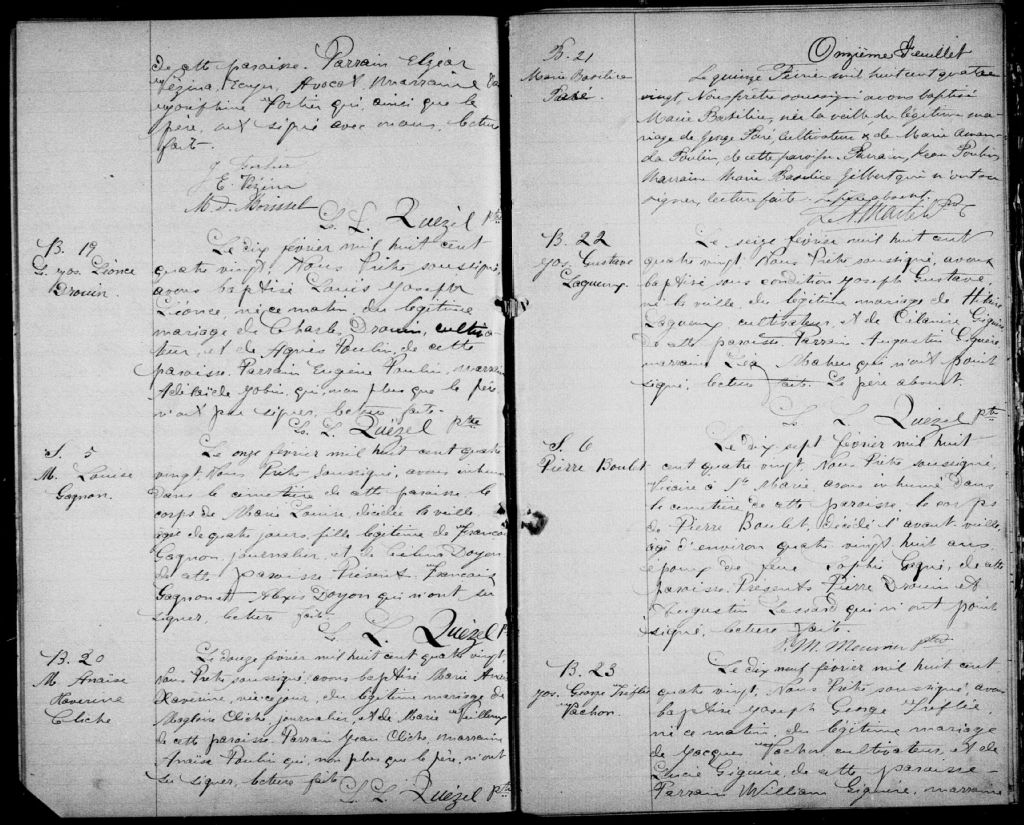 de cette paroisse. Parrain Elzéar
Vézina, Ecuyer, Avocat, Marraine
Joséphine Fortier qui ainsi que le
père, ont signé avec nous, lecture
faite.
J. Fortier
E. Vézina
M. D. Brisset
L. L. Quézel Ptre
B. 19
L. Jos. Léonce
Drouin.
Le dix février mil huit cent
quatre vingt, Nous Prêtre soussigné,
avons baptisé Louis Joseph
Léonce, né ce matin, du légitime
mariage de Charles Drouin, cultiva
teur, et de Agnès Poulin, de cette
paroisse. Parrain Eugène Poulin, marraine
Adélaïde Jobin, qui, non plus que le père
n'ont pu signer, lecture faite.
L. L. Quézel Ptre
S. 5
M. Louise
Gagnon.
Le onze février mil huit cent quatre
vingt, Nous Prêtre soussigné, avons inhumé
dans le cimetière de cette paroisse, le
corps de Marie Louise, décédée la veille
âgée de quatre jours, fille légitime de François
Gagnon, journalier, et de Doyon
de cette paroisse. Présents François
Gagnon et Alexis Doyon qui n'ont su
signer, lecture faite.
L. L. Quézel P
B. 20
M. Anaïse
Xavérine
Cliche
Le douze février mil huit cent quatre vingt
Nous Prêtre soussigné, avons baptisé Marie Anaïse
Xavérine, née ce jour, du légitime mariage de
Magloire Cliche, journalier, et de Marie Veilleux
de cette paroisse. Parrain Jean Cliche, marraine
Anaïse Poulin qui, non plus que le père, n'ont
su signer, lecture faite.
L. L. Quézel Ptre
Onzième Feuillet
B. 21
Marie Basilice
Paré.
Le quinze Février mil huit cent quatre
vingt, Nous prêtre soussigné avons baptisé
Marie Basilice, née la veille du légitime ma-
riage de George Paré, cultivateur & de Marie Aman-
da Poulin, de cette paroisse. Parrain, Jean Poulin,
Marraine Marie Basilice Gilbert qui n'ont su
signer, lecture faite. Le père absent.
B. 22
Jos. Gustave
Lagueux
Le seize février mil huit cent
quatre vingt, Nous Prêtre soussigné, avons
baptisé sous condition Joseph Gustave,
né la veille, du légitime mariage de
Lagueux, cultivateur, et de Giguère
de cette paroisse. Parrain Augustin Giguère
marraine Léa Maheu qui n'ont point
signé, lecture faite. Le père absent.
L. L. Quézel Ptre
S. 6
Pierre Boulet
Le dix sept février mil huit
cent quatre vingt, Nous Prêtre soussigné,
Vicaire à Ste Marie avons inhumé dans
le cimetière de cette paroisse, le corps
de Pierre Boulet, décédé l'avant veille,
âgé d'environ quatre vingt huit ans,
époux de feue Sophie de cette
paroisse. Présents Pierre Drouin et
Augustin Lessard qui n'ont point
signé, lecture faite.
B. 23
Jos. George Trefflé
Vachon.
Le dix neuf février mil huit cent
quatre vingt, Nous Prêtre soussigné, avons
baptisé Joseph George Trefflé,
né ce matin, du légitime mariage
de Jacques Vachon, cultivateur, et de
Lucie Giguère, de cette paroisse -
Parrain William Giguère, marraine